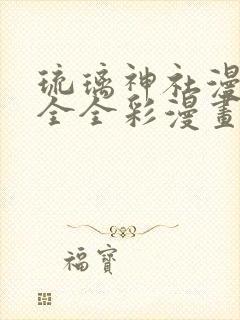 琉璃神社漫
全全彩漫畫
福寶